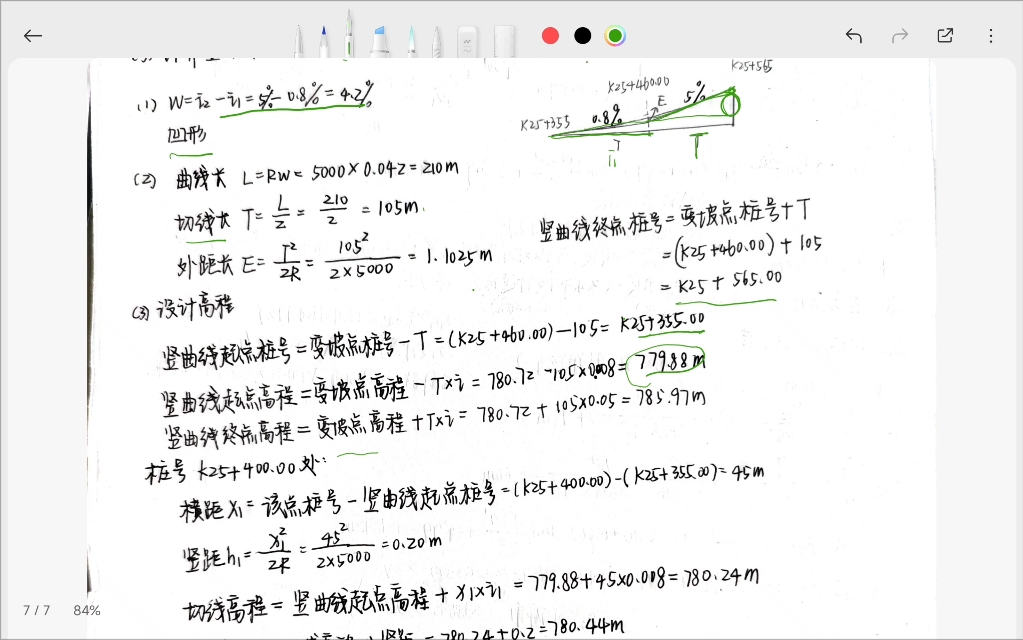 K25+565
K25+460.00
(1) W=i₂-i₁=5%-0.8%=4.2%
5%
E
K25+355
0.8%
T
i₁
T
凹形
(2) 曲线长 L=RW=5000×0.042=210m
切线长 T=L/2=210/2=105m.
竖曲线终点桩号=变坡点桩号+T
=(K25+460.00)+105
外距长 E=T²/2R=105²/2×5000=1.1025m
=K25+565.00
(3) 设计高程
竖曲线起点桩号=变坡点桩号-T=(K25+460.00)-105=K25+355.00
竖曲线起点高程=变坡点高程-T×i=780.72-105×0.008=779.88m
竖曲线终点高程=变坡点高程+T×i=780.72+105×0.05=785.97m
桩号K25+400.00处:
横距X₁=该点桩号-竖曲线起点桩号=(K25+400.00)-(K25+355.00)=45m
竖距h₁=X₁²/2R=45²/2×5000=0.20m
切线高程=竖曲线起点高程+X₁×i₁=779.88+45×0.008=780.24m
=780.24+0.2=780.44m
7/7 84%